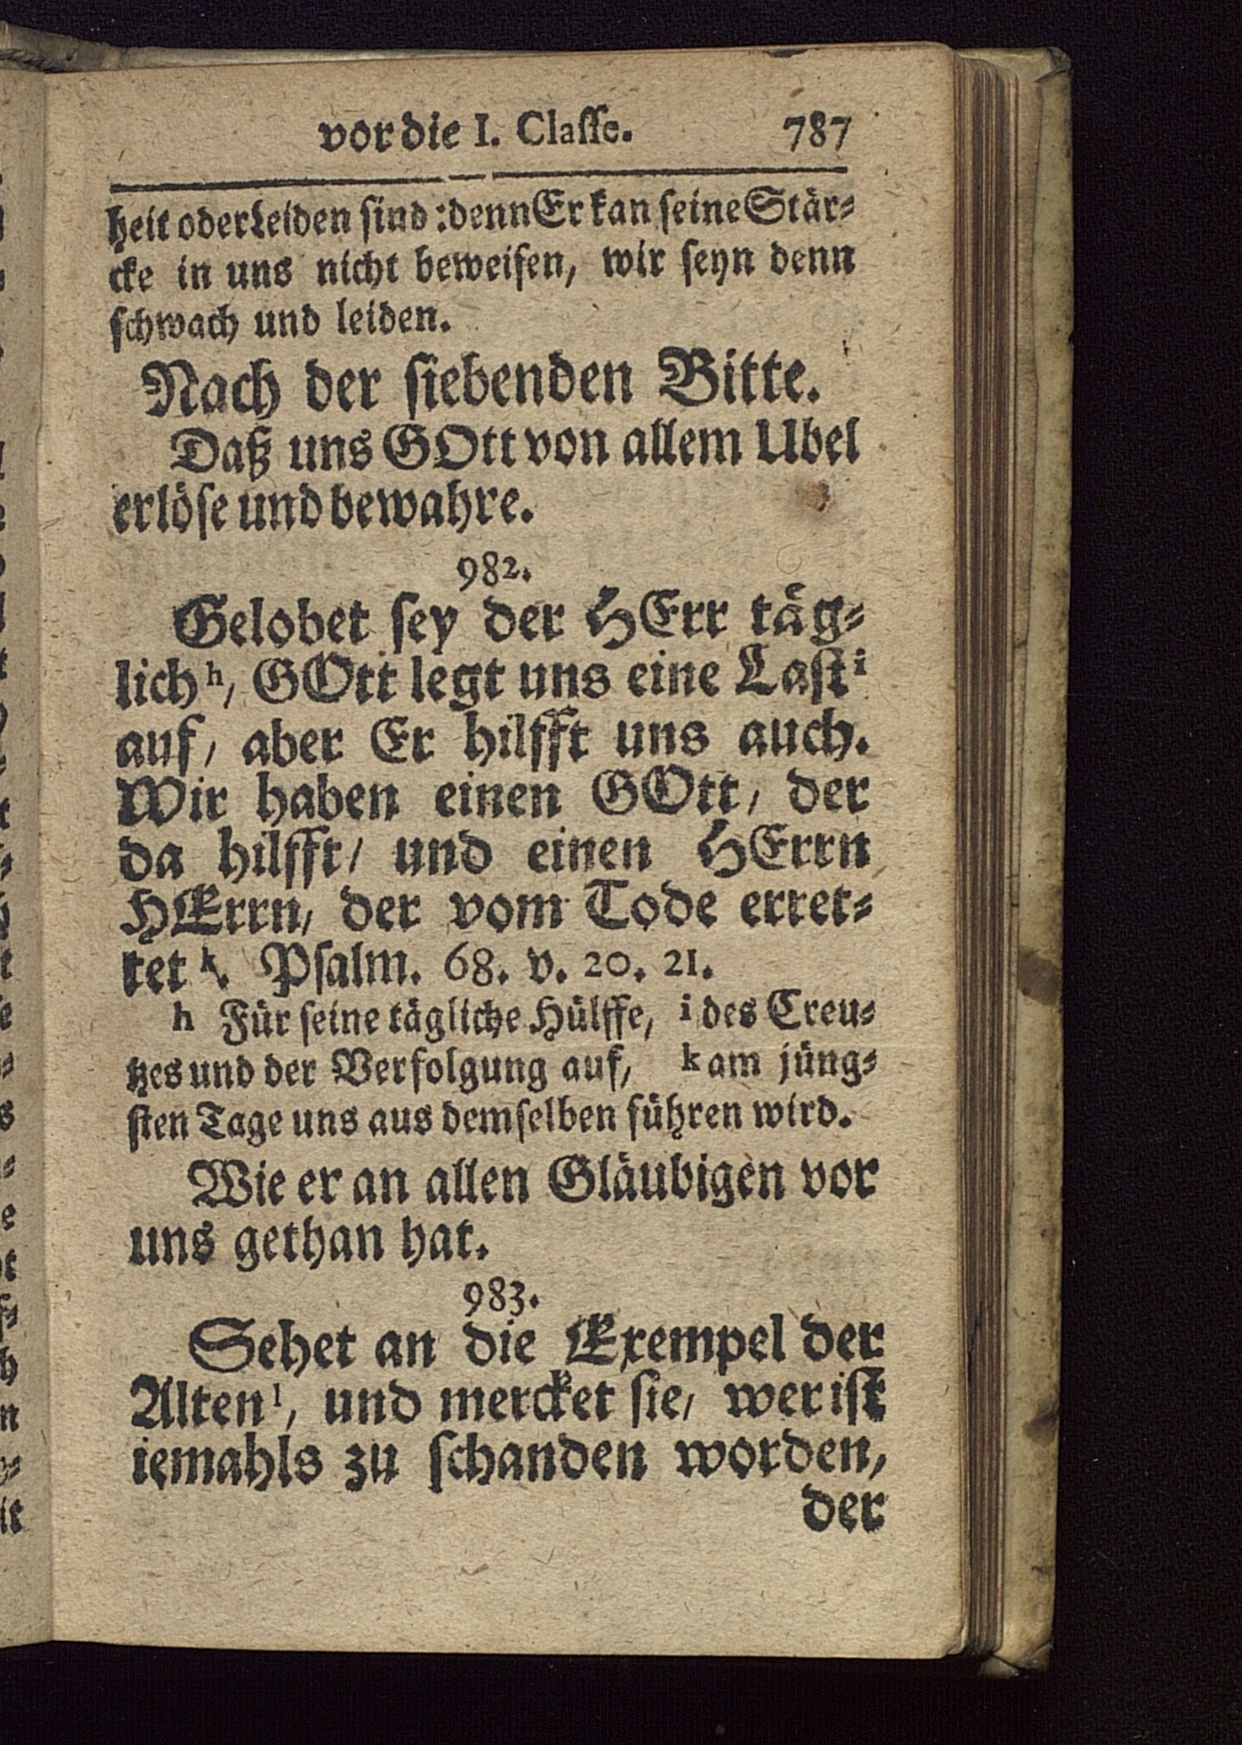 vor die I. Classe. 787
heit oder Leiden sind: denn Er kan seine Stär-
cke in uns nicht beweisen, wir seyn denn
schwach und leiden.
Nach der siebenden Bitte.
Daß uns GOtt von allem Ubel
erlöse und bewahre.
982.
Gelobet sey der HErr täg-
lich h, GOtt legt uns eine Last i
auf, aber Er hilfft uns auch.
Wir haben einen GOtt, der
da hilfft, und einen HErrn
HErrn, der vom Tode erret-
tet k. Psalm. 68. v. 20. 21.
h Für seine tägliche Hülffe, i des Creu-
tzes und der Verfolgung auf, k am jüng-
sten Tage uns aus demselben führen wird.
Wie er an allen Gläubigen vor
uns gethan hat.
983.
Sehet an die Exempel der
Alten l, und mercket sie, wer ist
iemahls zu schanden worden,
der